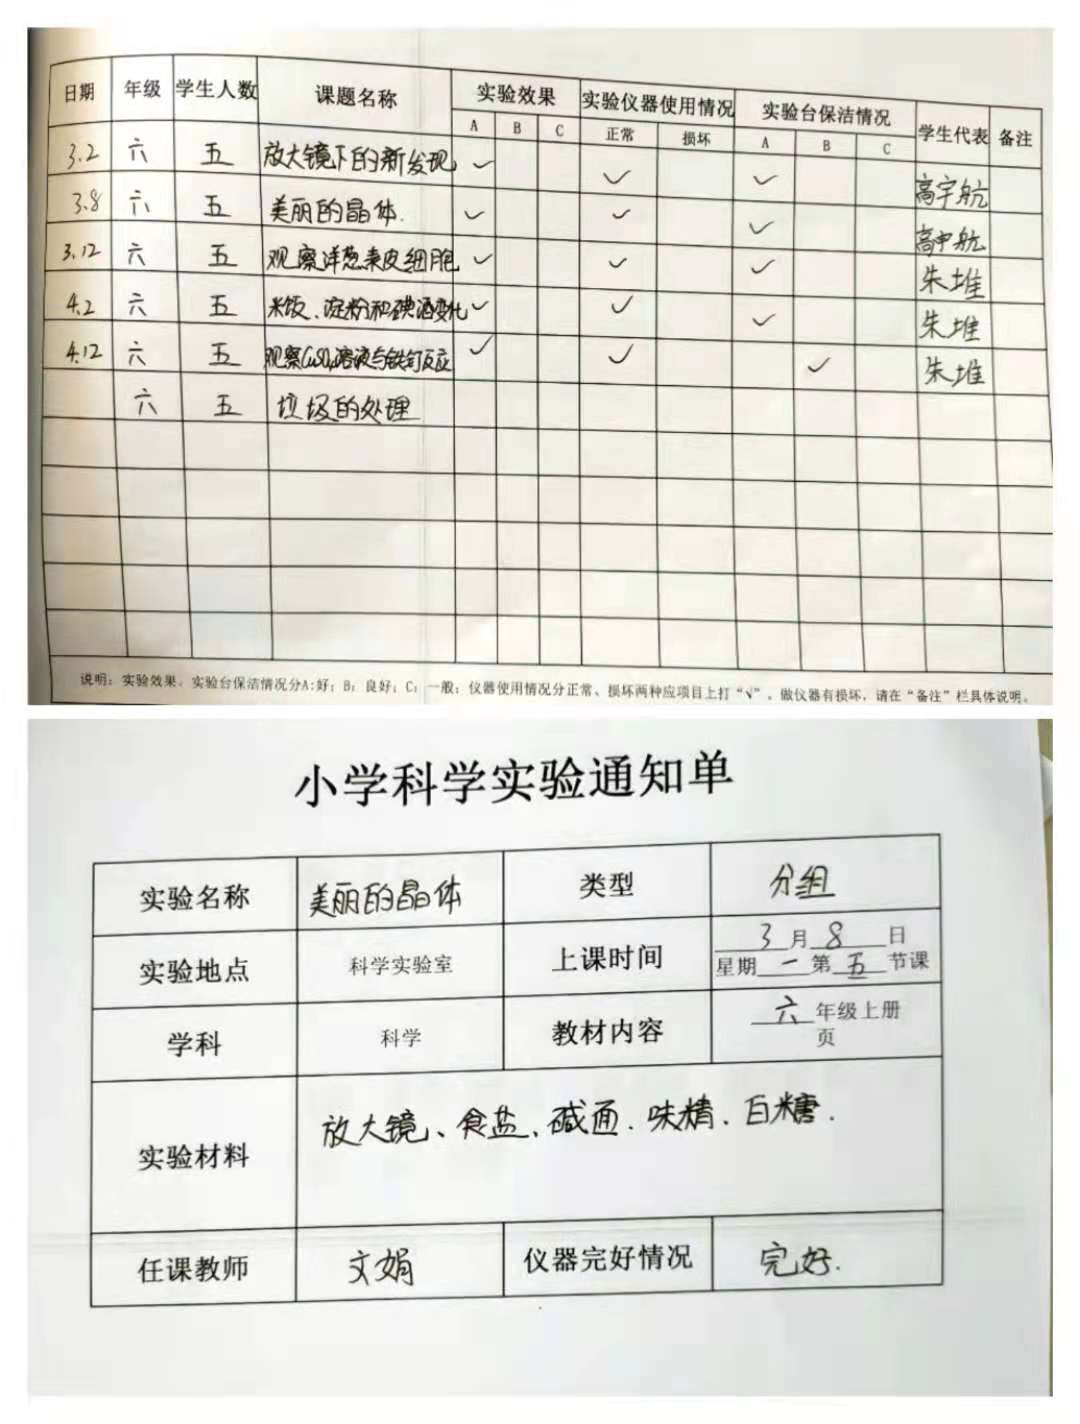 日期 年级 学生人数 课题名称 实验效果 实验仪器使用情况 实验台保洁情况 学生代表 备注
A B C 正常 损坏 A B C
3.2 六 五 放大镜下的新发现 ✓ ✓ ✓ 高宇航
3.8 六 五 美丽的晶体. ✓ ✓ ✓ 高宇航
3.12 六 五 观察洋葱表皮细胞 ✓ ✓ ✓ 朱堆
4.2 六 五 米饭、淀粉和碘酒变化 ✓ ✓ ✓ 朱堆
4.12 六 五 观察CuSO4溶液与铁钉反应 ✓ ✓ ✓ 朱堆
六 五 垃圾的处理
说明：实验效果、实验台保洁情况分A:好；B：良好；C：一般；仪器使用情况分正常、损坏两种应项目上打“√”。做仪器有损坏，请在“备注”栏具体说明。
小学科学实验通知单
实验名称 美丽的晶体 类型 分组
实验地点 科学实验室 上课时间 3月8日
星期一第五节课
学科 科学 教材内容 六年级上册
页
实验材料 放大镜、食盐、碱面.味精.白糖.
任课教师 文娟 仪器完好情况 完好.